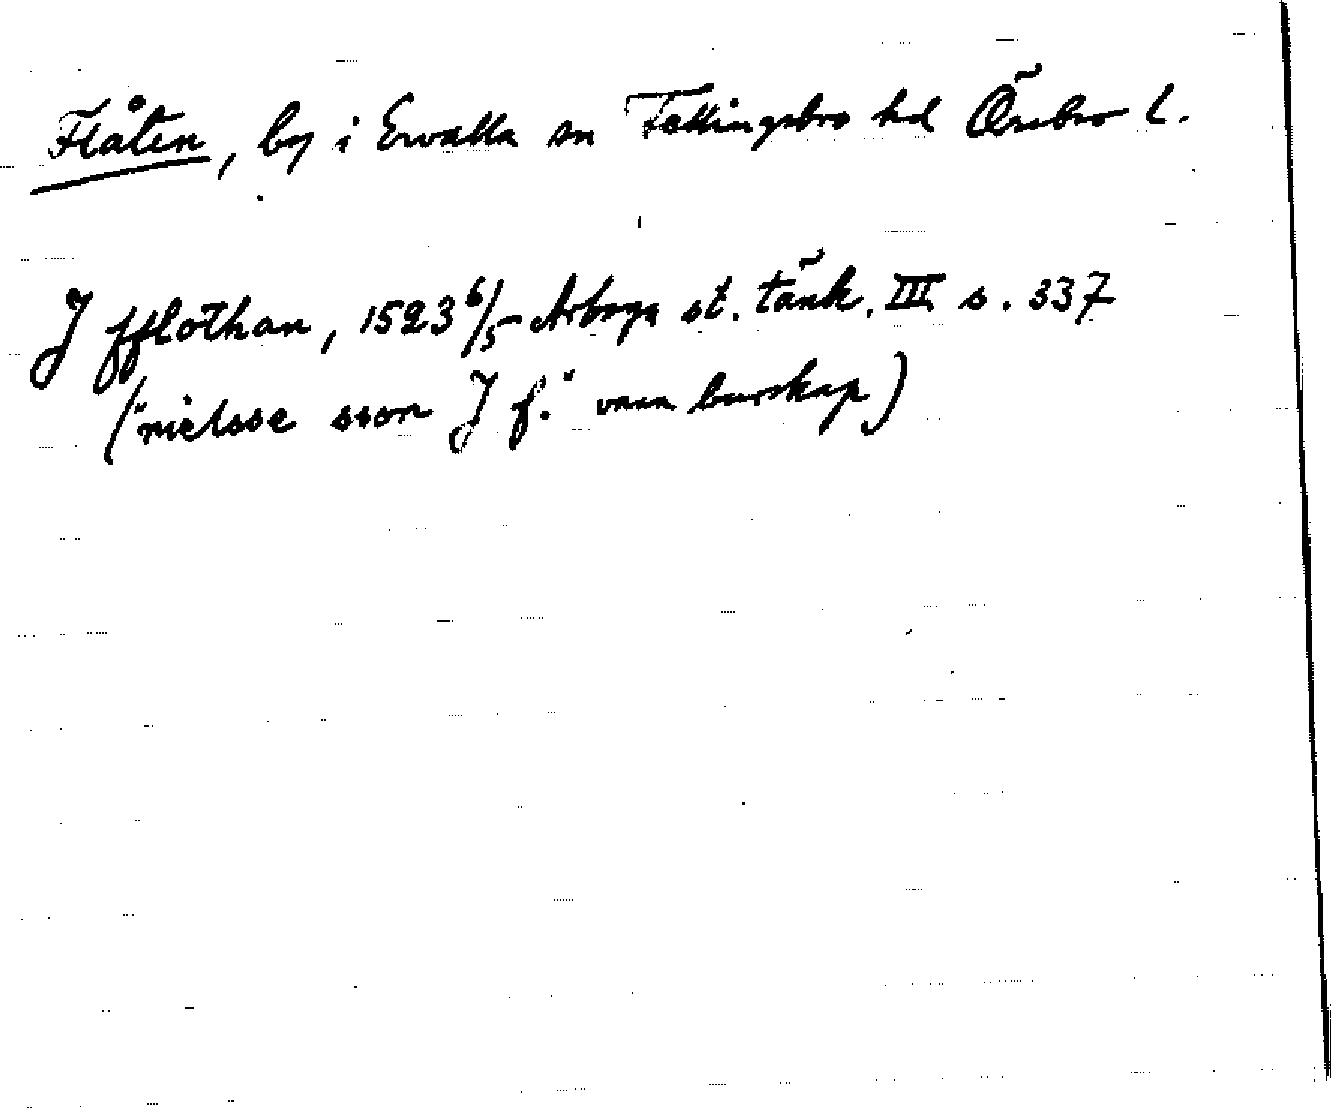 Flåten, by i Ervalla sn Fellingsbro hd Örebro l.
J fflothan, 1523 6/5 Arboga st. tänk. III s. 337
("nielsse ston J f." vnn burskap)